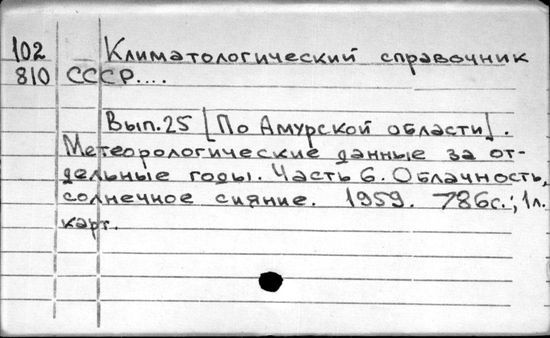 102 Климатологический справочник
810 СССР....
Вып.25 [По Амурской области].
Метеорологические данные за от-
дельные годы. Часть 6. Облачность,
солнечное сияние. 1959. 786с.; 1л.
карт.